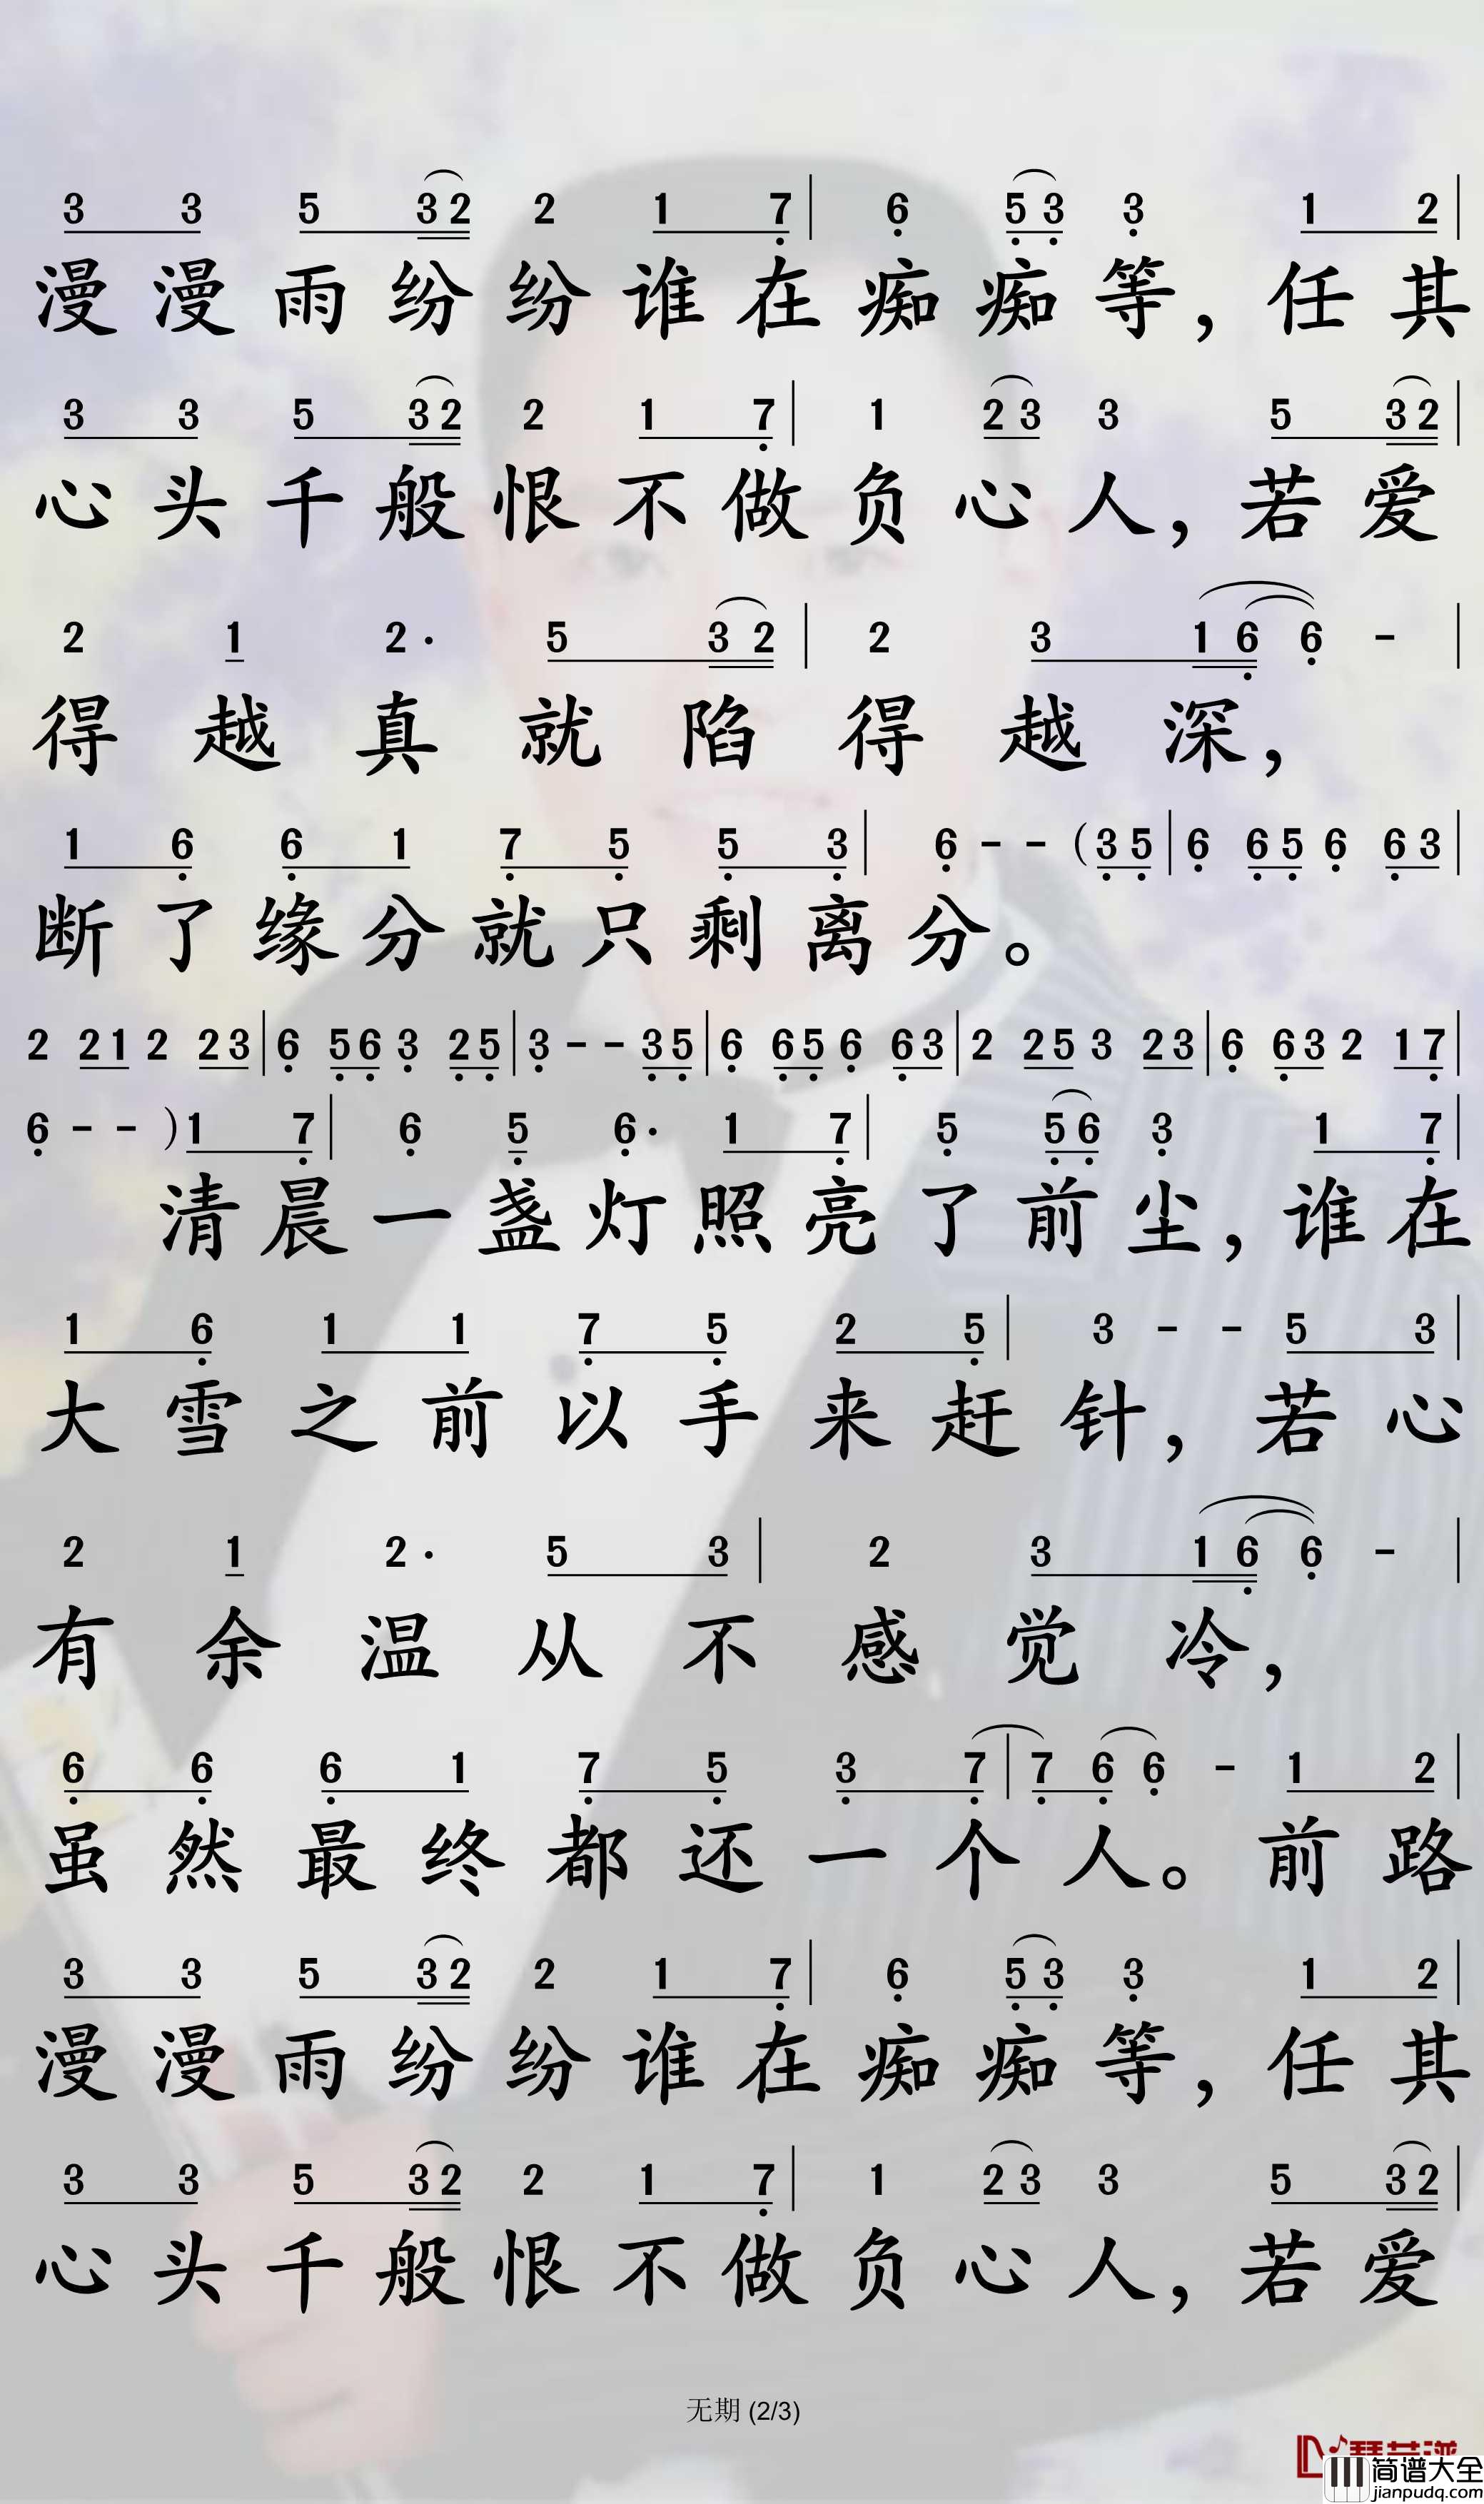 3 3 5 3 2 2 1 7 | 6 5 3 3 1 2 |
漫漫雨纷纷谁在痴痴等，任其
3 3 5 3 2 2 1 7 | 1 2 3 3 5 3 2 |
心头千般恨不做负心人，若爱
2 1 2· 5 3 2 | 2 3 1 6 6 - |
得越真就陷得越深，
1 6 6 1 7 5 5 3 | 6 - - (3 5 | 6 6 5 6 6 3 |
断了缘分就只剩离分。
2 2 1 2 2 3 | 6 5 6 3 2 5 | 3 - - 3 5 | 6 6 5 6 6 3 | 2 2 5 3 2 3 | 6 6 3 2 1 7 |
6 - - ) 1 7 | 6 5 6· 1 7 | 5 5 6 3 1 7 |
清晨一盏灯照亮了前尘，谁在
1 6 1 1 7 5 2 5 | 3 - - 5 3 |
大雪之前以手来赶针，若心
2 1 2· 5 3 | 2 3 1 6 6 - |
有余温从不感觉冷，
6 6 6 1 7 5 3 7 | 7 6 6 - 1 2 |
虽然最终都还一个人。前路
3 3 5 3 2 2 1 7 | 6 5 3 3 1 2 |
漫漫雨纷纷谁在痴痴等，任其
3 3 5 3 2 2 1 7 | 1 2 3 3 5 3 2 |
心头千般恨不做负心人，若爱
无期 (2/3)
简谱大全
jianpudq.com